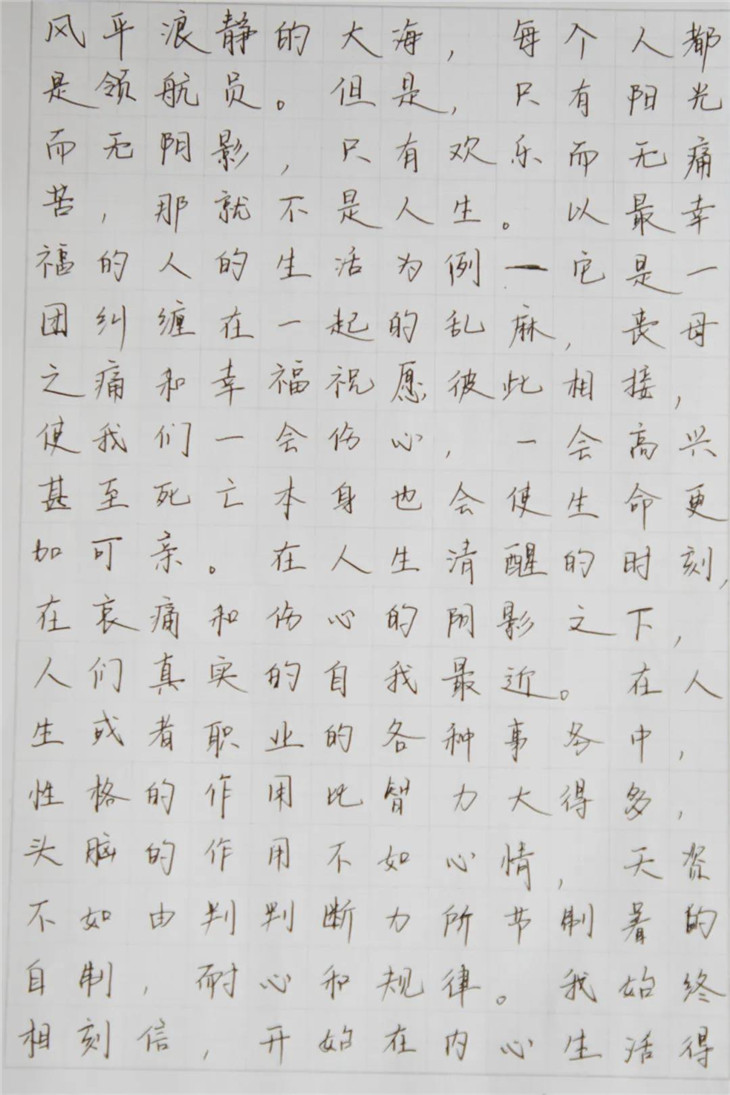 风平浪静的大海，每个人都
是领航员。但是，只有阳光
而无阴影，只有欢乐而无痛
苦，那就不是人生。以最幸
福的人的生活为例一它是一
团纠缠在一起的乱麻，丧母
之痛和幸福祝愿彼此相接，
使我们一会伤心，一会高兴
甚至死亡本身也会使生命更
加可亲。在人生清醒的时刻，
在哀痛和伤心的阴影之下，
人们真实的自我最近。在人
生或者职业的各种事务中，
性格的作用比智力大得多，
头脑的作用不如心情，天资
不如由判判断力所节制着的
自制，耐心和规律。我始终
相刻信，开始在内心生活得